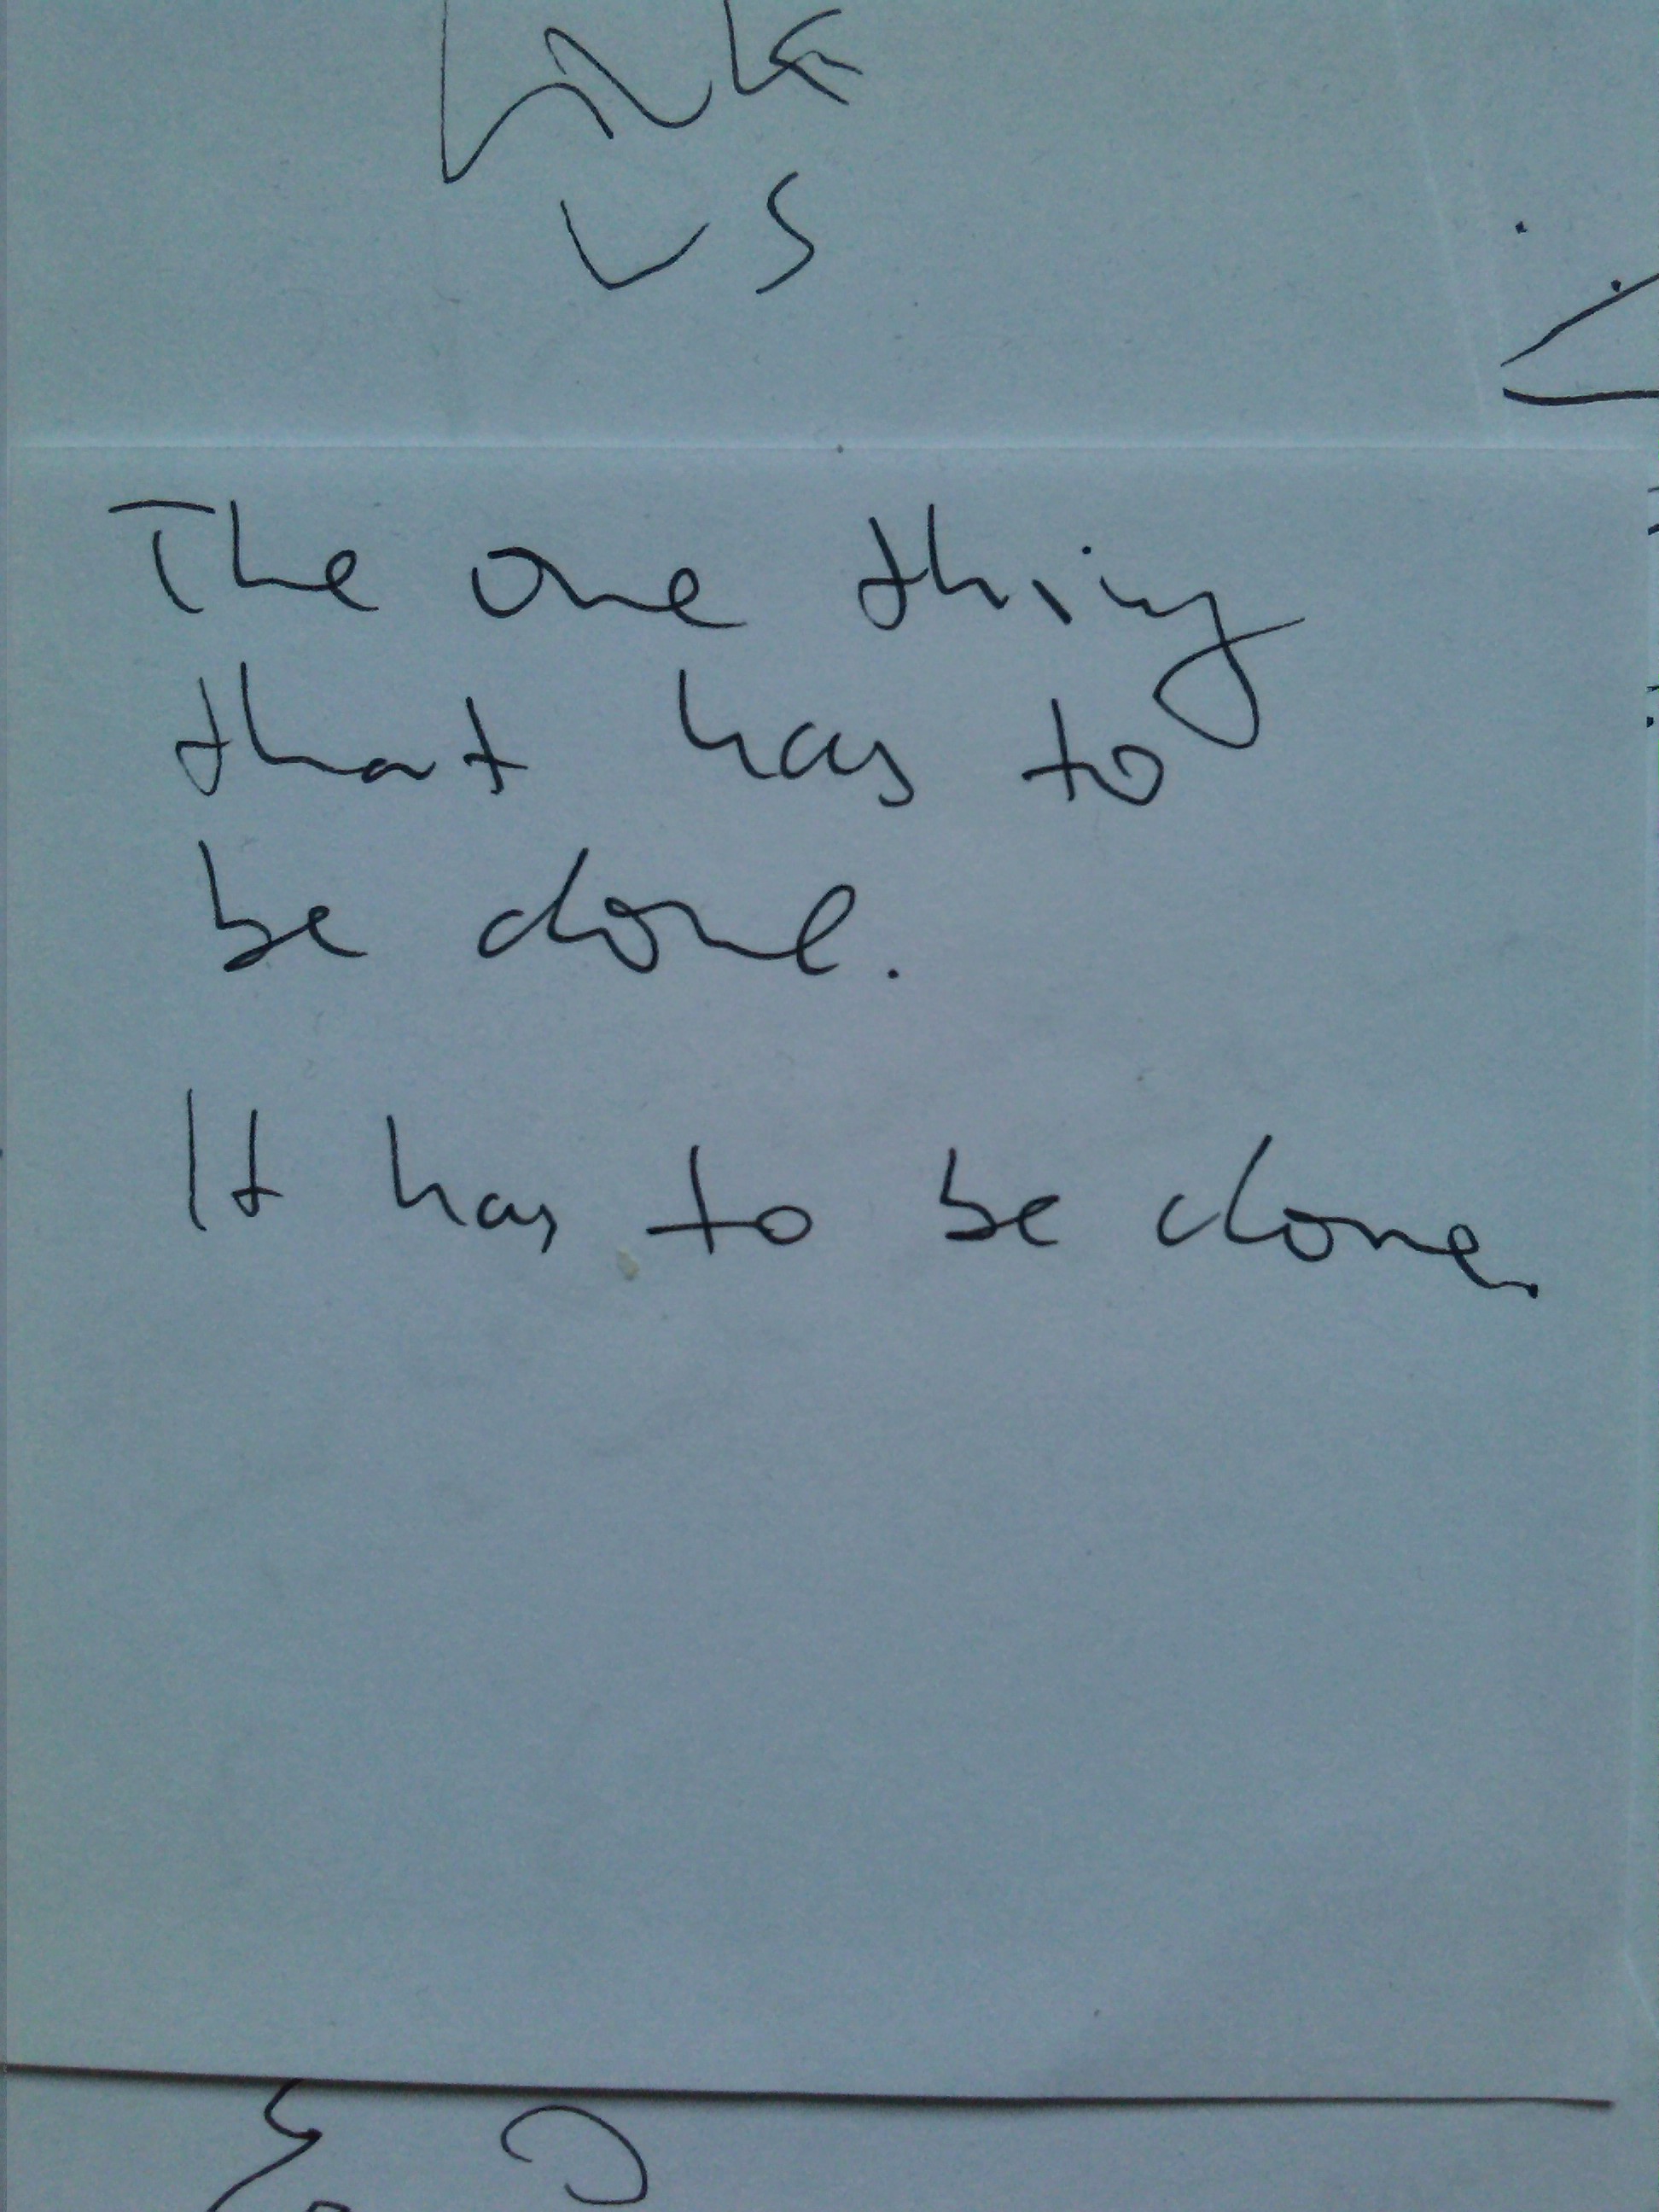 us
The one thing
that has to
be done.
It has to be done.